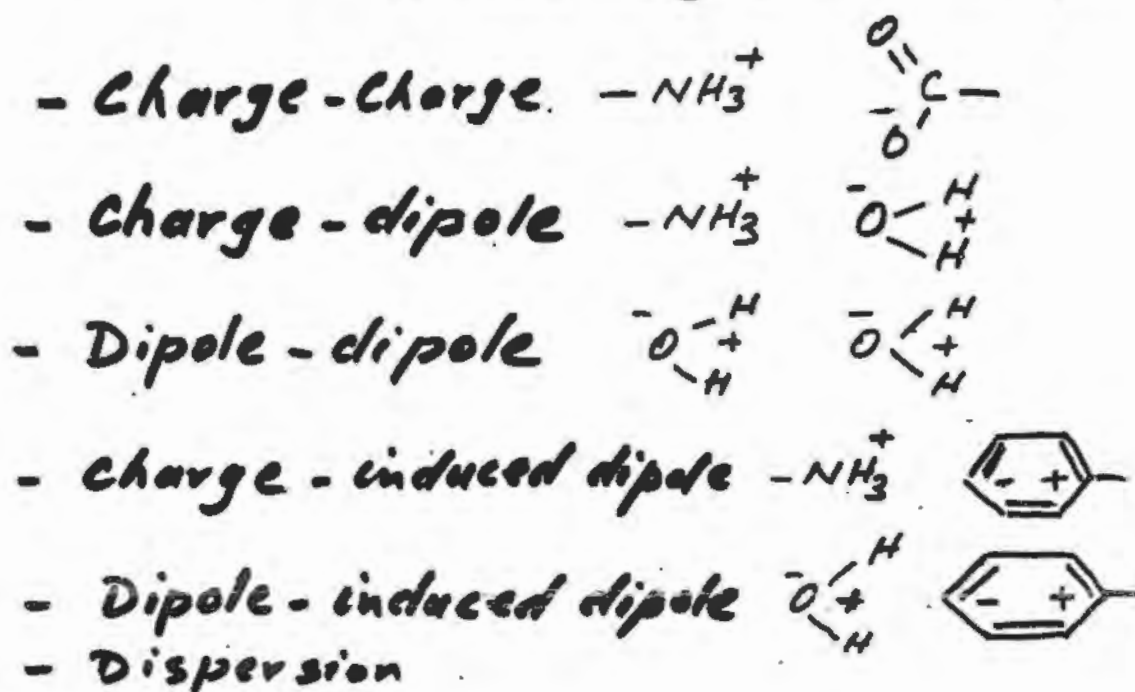 - Charge-Charge. -NH₃⁺ O=C(-O⁻)-
- Charge-dipole -NH₃⁺ ⁻O H + H
- Dipole-dipole ⁻O H + H ⁻O H + H
- Charge-induced dipole -NH₃⁺ - +
- Dipole-induced dipole ⁻O H + H - +
- Dispersion